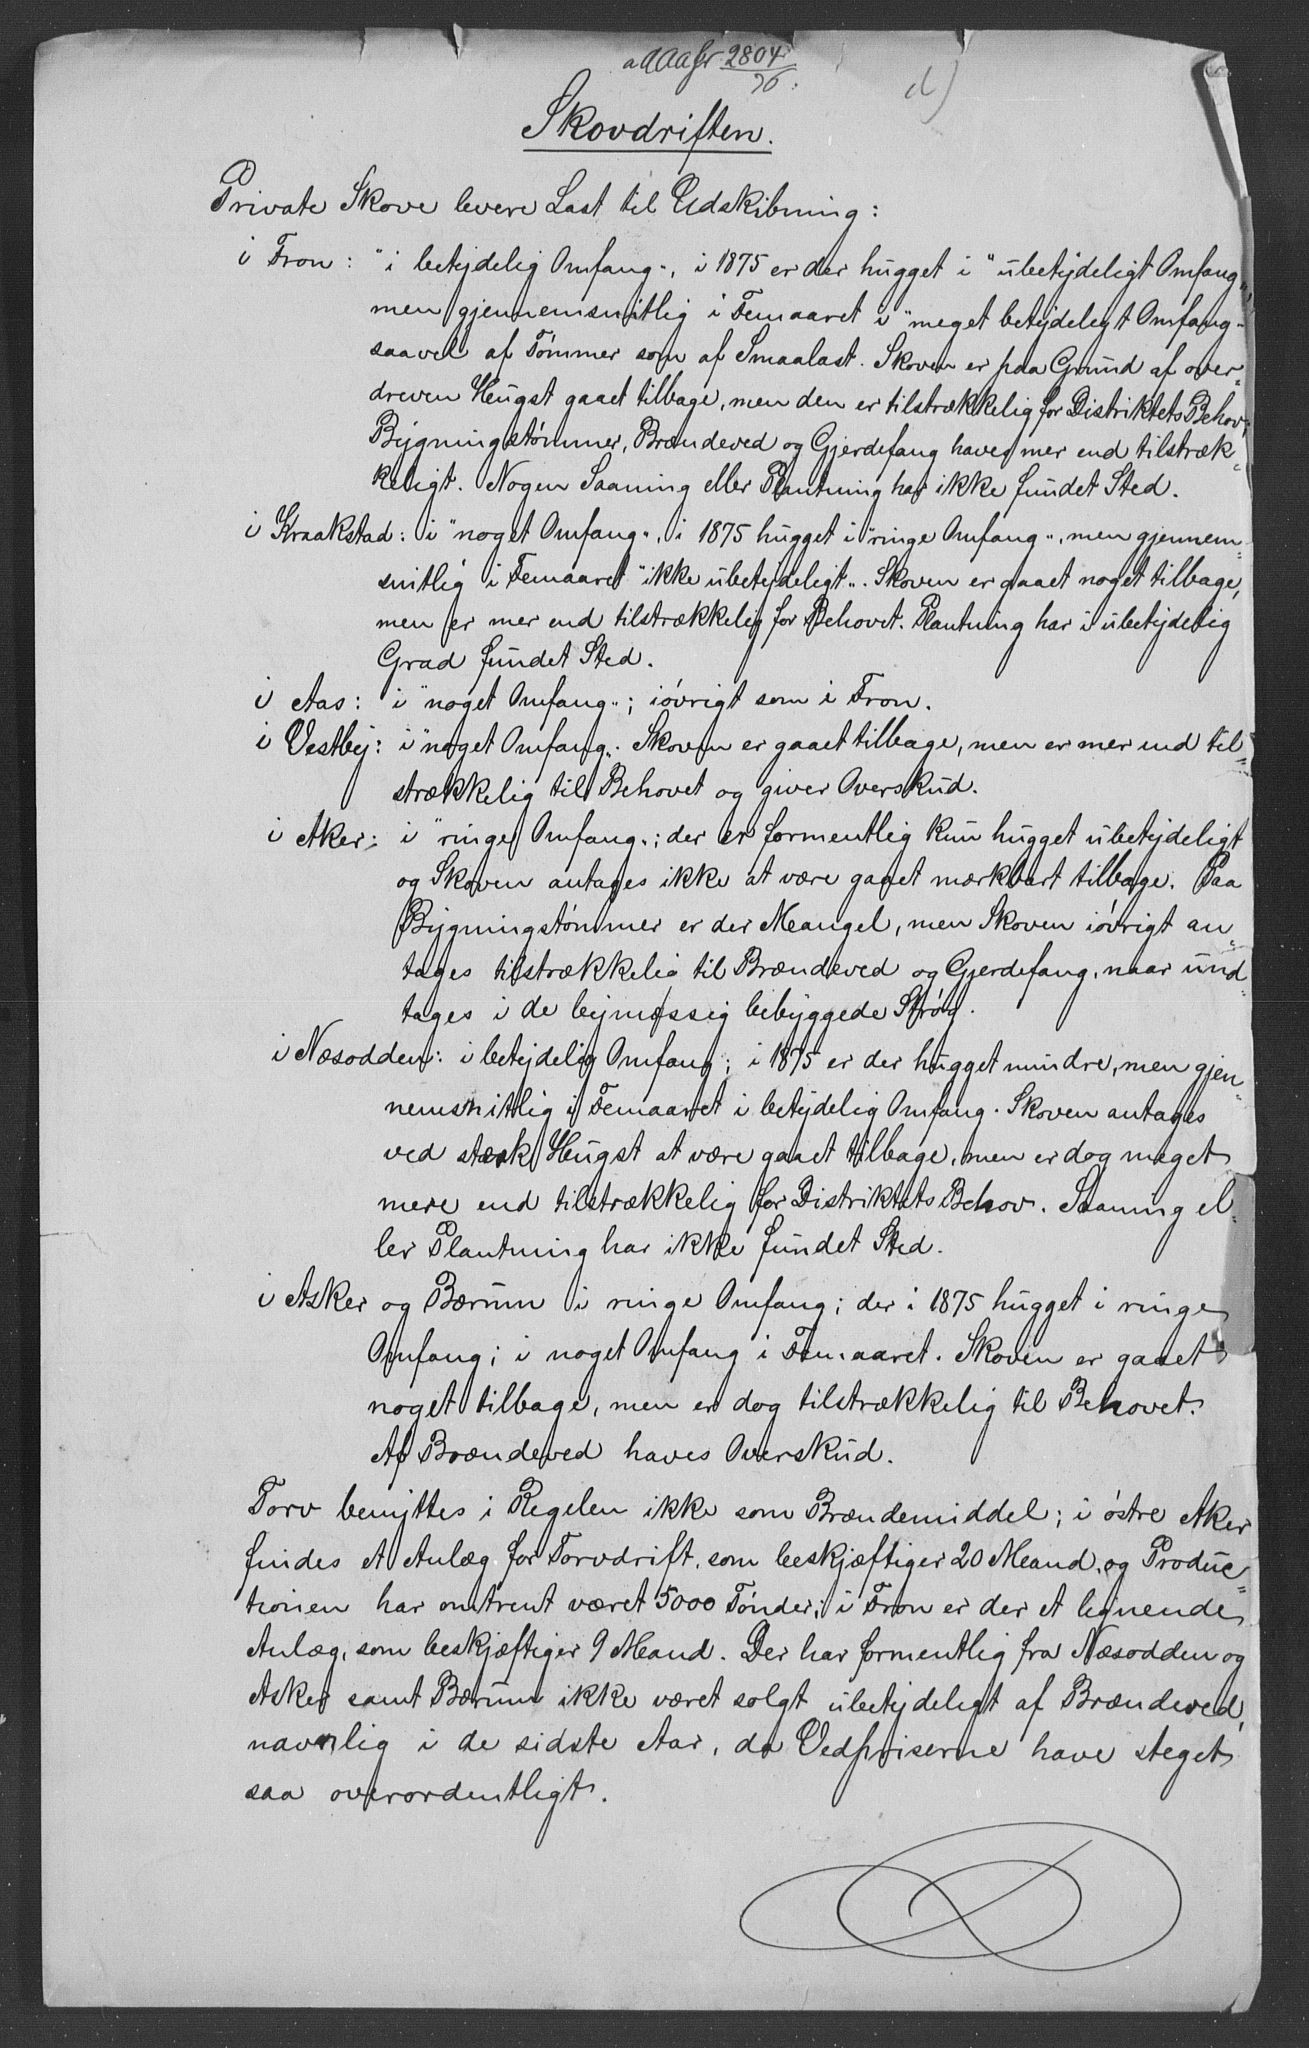 2804
76.
d)
Skovdriften.
Private Skove levere Last til Udskibning:
i Fron: "i betydelig Omfang", i 1875 er der hugget i "ubetydeligt Omfang",
men gjennemsnitlig i Femaaret i "meget betydeligt Omfang"
saavel af Tømmer som af Smaalast. Skoven er paa Grund af over=
dreven Hugst gaaet tilbage, men den er tilstrækkelig for Distriktets Behov;
Bygningstømmer, Brændeved og Gjerdefang haves mer end tilstræk=
keligt. Nogen Saaning eller Plantning har ikke fundet Sted.
i Kraakstad: i "noget Omfang", i 1875 hugget i "ringe Omfang", men gjennem=
snitlig i Femaaret "ikke ubetydeligt". Skoven er gaaet noget tilbage,
men er mer end tilstrækkelig for Behovet. Plantning har i ubetydelig
Grad fundet Sted.
i Aas: i "noget Omfang"; iøvrigt som i Fron.
i Vestby: i "noget Omfang". Skoven er gaaet tilbage, men er mer end til=
strækkelig til Behovet og giver Overskud.
i Aker: i "ringe Omfang"; der er formentlig kun hugget ubetydeligt
og Skoven antages ikke at være gaaet mærkbart tilbage. Paa
Bygningstømmer er der Mangel, men Skoven iøvrigt an=
tages tilstrækkelig til Brændeved og Gjerdefang, naar und=
tages i de bymæssig bebyggede Strøg.
i Næsodden: i betydelig Omfang; i 1875 er der hugget mindre, men gjen=
nemsnitlig i Femaaret i betydelig Omfang. Skoven antages
ved stærk Hugst at være gaaet tilbage, men er dog meget
mere end tilstrækkelig for Distriktets Behov. Saaning el=
ler Plantning har ikke fundet Sted.
i Asker og Bærum i ringe Omfang; der i 1875 hugget i ringe
Omfang; i noget Omfang i Femaaret. Skoven er gaaet
noget tilbage, men er dog tilstrækkelig til Behovet.
Af Brændeved haves Overskud.
Torv benyttes i Regelen ikke som Brændemiddel; i østre Aker
findes et Anlæg for Torvdrift, som beskjæftiger 20 Mand, og Produc=
tionen har omtrent været 5000 Tønder; i Fron er der et lignende
Anlæg, som beskjæftiger 9 Mand. Der har formentlig fra Næsodden og
Asker samt Bærum ikke været solgt ubetydeligt af Brændeved,
navnlig i de sidste Aar, da Vedpriserne have steget
saa overordentligt.